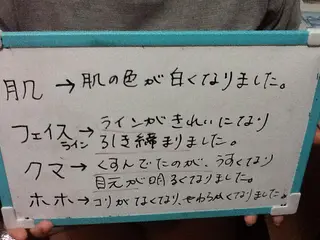 肌 → 肌の色が白くなりました。
フェイスライン → ラインがきれいになり
引き締まりました。
クマ → くすんでたのが、うすくなり
目元が明るくなりました。
ホホ → コリがなくなり、やわらかくなりました。